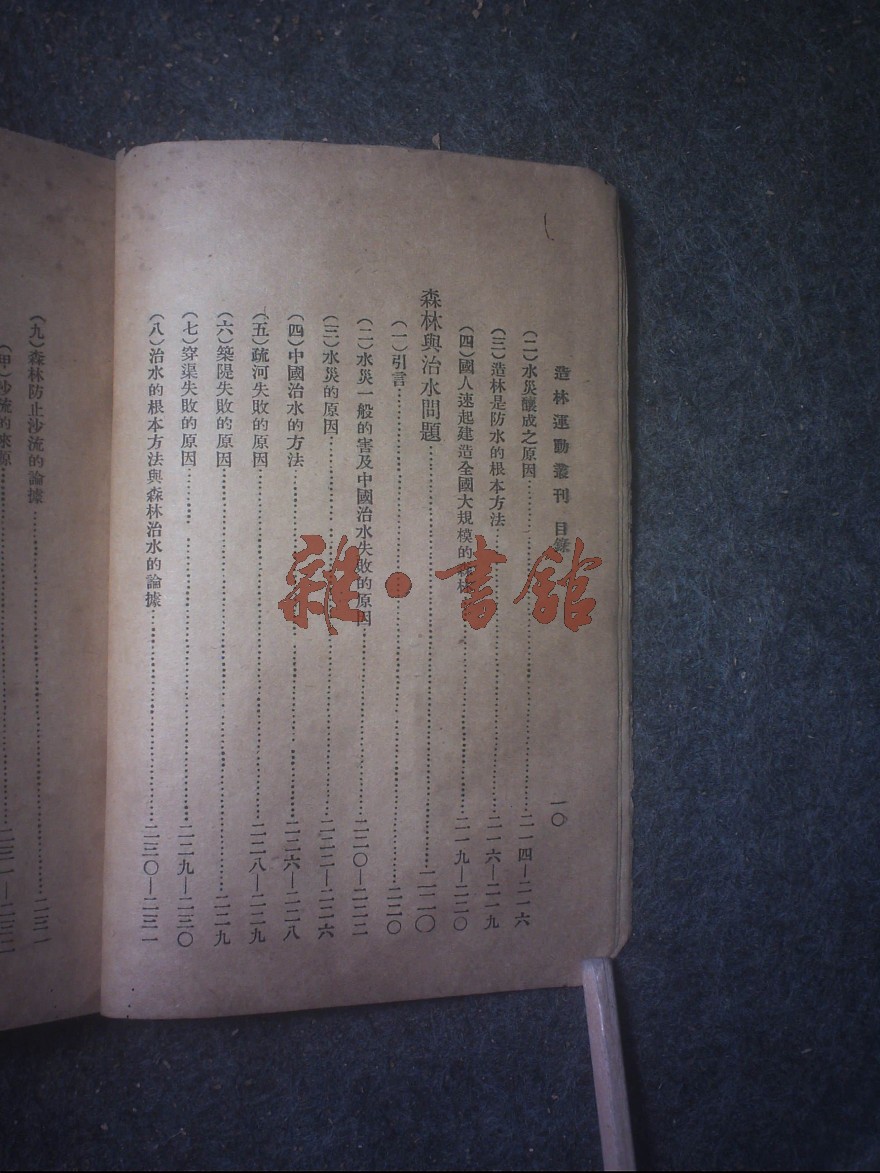 造林運動叢刊 目錄 一〇
(二)水災釀成之原因……二一四—二一六
(三)造林是防水的根本方法……二一六—二一九
(四)國人速起建造全國大規模的森林……二一九—二二〇
森林與治水問題……二二〇
(一)引言……二二〇
(二)水災一般的害及中國治水失敗的原因……二二〇—二二二
(三)水災的原因……二二二—二二六
(四)中國治水的方法……二二六—二二八
(五)疏河失敗的原因……二二八—二二九
(六)築隄失敗的原因……二二九
(七)穿渠失敗的原因……二二九—二三〇
(八)治水的根本方法與森林治水的論據……二三〇—二三一
(九)森林防止沙流的論據……二三一
(甲)沙流的來源……二三一—二三二
雜·書館